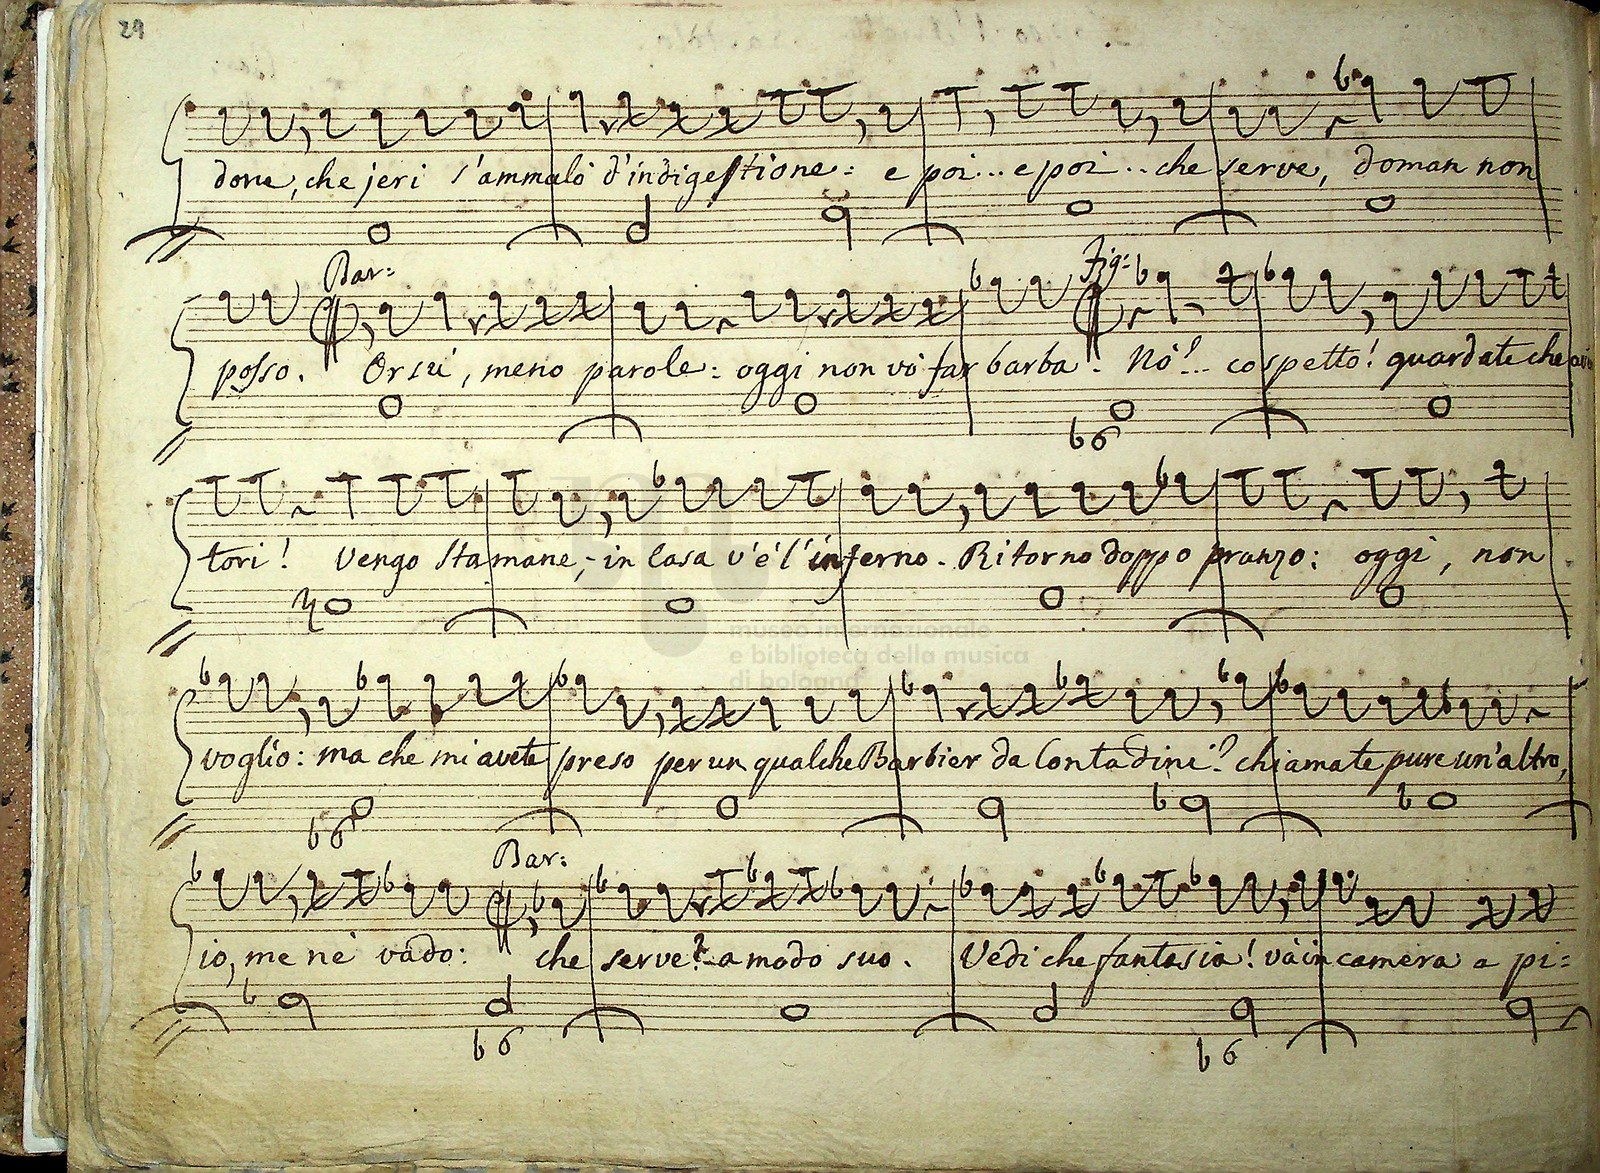 29
done, che jeri s'ammalò d'indigestione: e poi... e poi .. che serve, doman non
Bar: Fig:
posso. Orsù, meno parole: oggi non vò far barba. Nò?.. cospetto! guardate che
tori! Vengo stamane; in Casa v'è l'inferno. Ritorno doppo pranzo: oggi, non
museo internazionale
e biblioteca della musica
di bologna
voglio: ma che mi avete preso per un qualche Barbier da Contadini? chiamate pure un'altro,
b6 b6
Bar:
io, me nè vado: che serve? a modo suo. Vedi che fantasia! và in camera a pi=
b6 b6